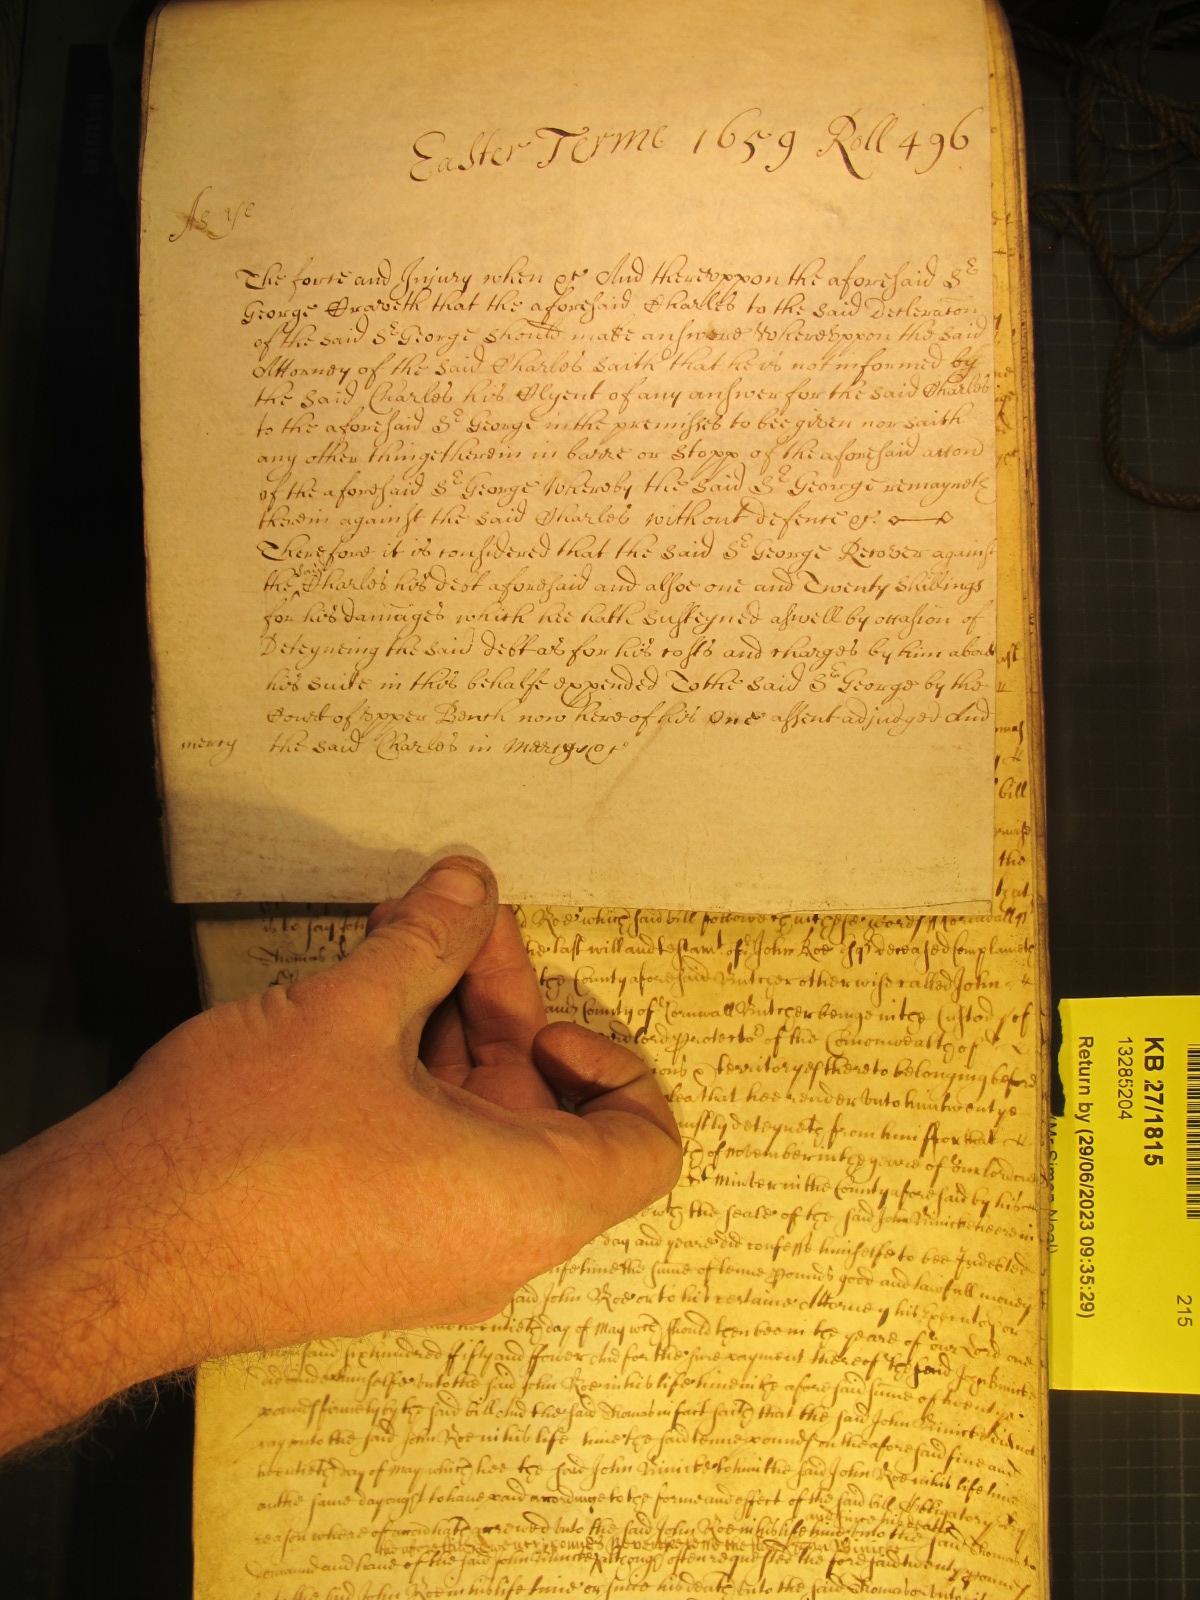 Easter Terme 1659 Roll 496
As ye
The force and Injury when &c And thereuppon the aforesaid Sr
George Prayeth that the aforesaid Charles to the said Decleracon
of the said Sr George should make answere Whereuppon the said
Attorney of the said Charles saith that he is not informed by
the said Charles his Clyent of any answer for the said Charles
to the aforesaid Sr George in the premisses to bee given nor saith
any other thinge therein in barre or stopp of the aforesaid accon
of the aforesaid Sr George Whereby the said Sr George remayneth
therein against the said Charles without defence &c
Therefore it is considered that the said Sr George Recover against
the said Charles his debt aforesaid and alsoe one and Twenty shillings
for his damages which hee hath susteyned aswell by occasion of
Deteyneing the said debt as for his costs and charges by him about
his suite in this behalfe expended To the said Sr George by the
Court of upper Bench now here of his owne assent adjudged And
mercy the said Charles in Mercy &c
is to say John Roe which said bill followeth in these words Cornwall ss
Thomas the last will and testamt of John Roe Esqr deceased complaineth
the County aforesaid Butcher otherwise called John
and County of Cornwall Butcher beinge in the Custody of
lord protector of the Comonwealth of
territoryes thereto belonging before
plea that hee render unto him twentye
uniustly deteyneth from him for that
of November in the yeare of our lord one
Westminster in the County aforesaid by his
with the seale of the said John Binicke heere in
day and yeare did confesse himselfe to bee Indebted
lifetime the sume of tenne Pounds good and lawfull money
said John Roe or to his certaine Attorney his Executors or
twentieth day of May wch should then bee in the yeare of our Lord one
thousand six hundred fifty and ffower And for the sure payment thereof the said John Binicke
did bind himselfe unto the said John Roe in his life time in the aforesaid sume of twentye
pounds firmely by the said bill And the said Thomas in fact saith that the said John Binicke did not
pay unto the said John Roe in his life time the said tenne pounds on the aforesaid five and
twentieth day of May which hee the said John Binicke to him the said John Roe in his life time
on the same day ought to have paid accordinge to the forme and effect of the said bill Obligatory By
reason whereof accon hath accrewed unto the said John Roe in his life time and since his death unto the said Thomas to
demaund and have of the said John Binicke although often requested the foresaid twenty pounds
to the said John Roe in his life time or since his death unto the said Thomas
KB 27/1815
13285204
Return by (29/06/2023 09:35:29)
215
(Mr Simon Neal)